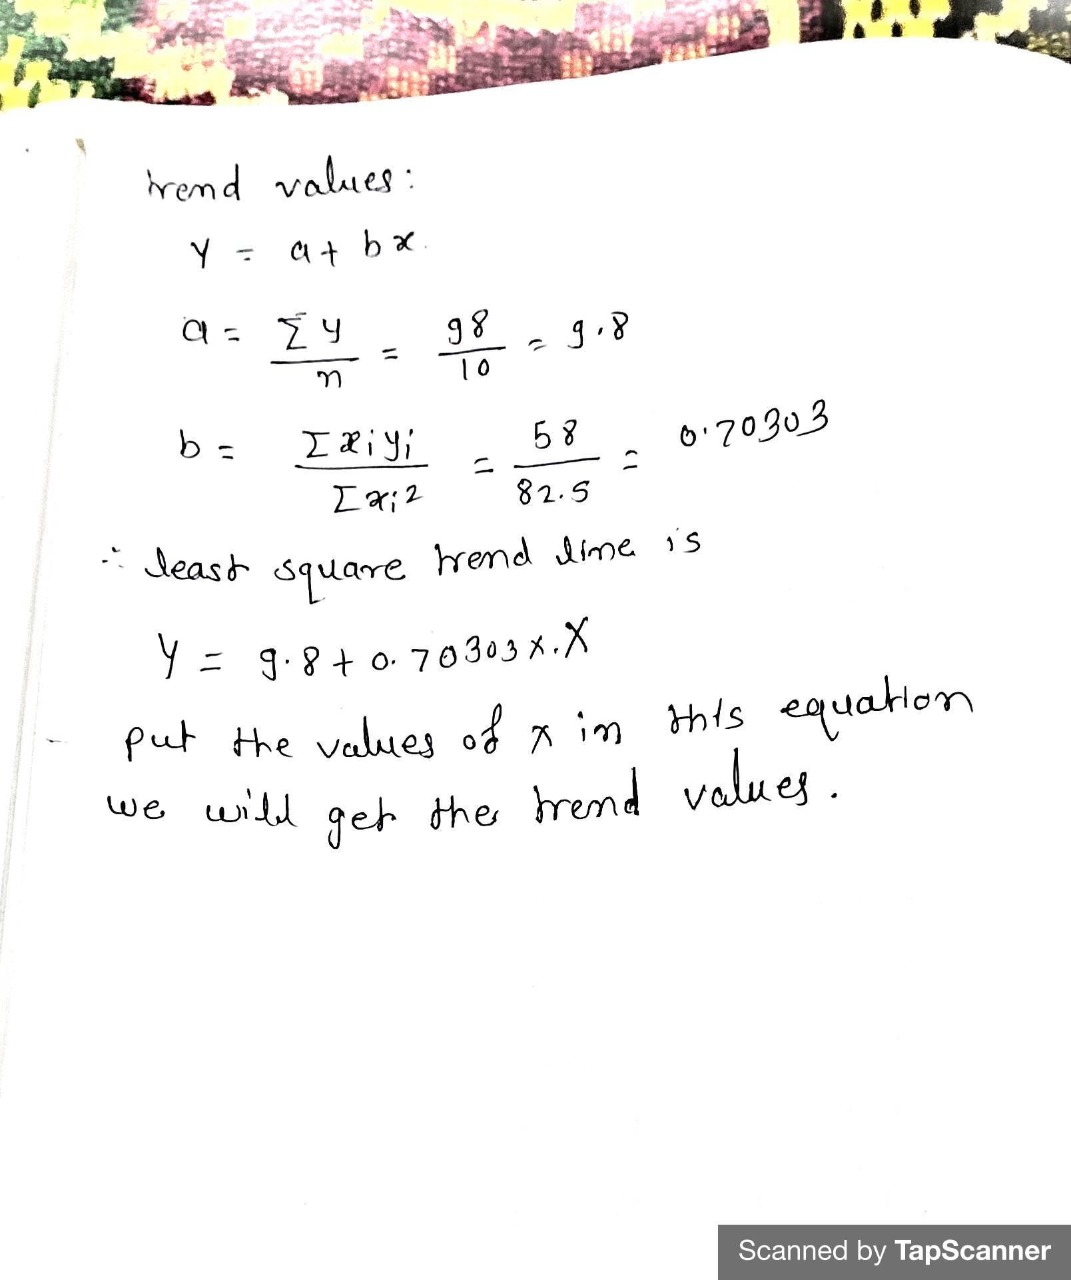 trend values:
Y = a + bx.
a = Σy / n = 98 / 10 = 9.8
b = Σxiyi / Σxi2 = 58 / 82.5 = 0.70303
∴ least square trend line is
Y = 9.8 + 0.70303 x.X
put the values of x in this equation
we will get the trend values.
Scanned by TapScanner